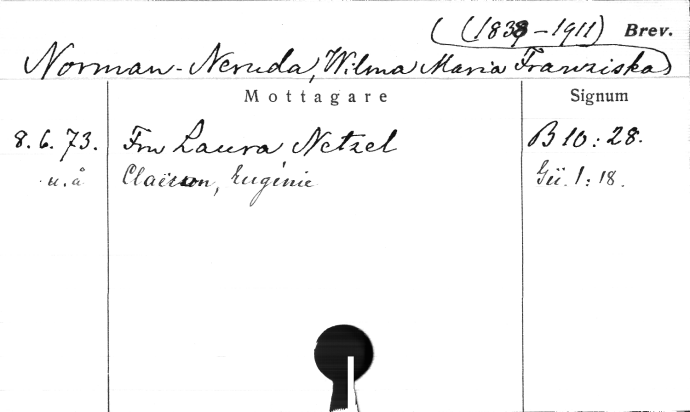 (1838-1911) Brev.
Norman-Neruda, Wilma Maria Franziska
Mottagare Signum
8.6.73. Fru Laura Netzel B 10:28.
u.å Claëson, Eugénie Gü. 1:18.